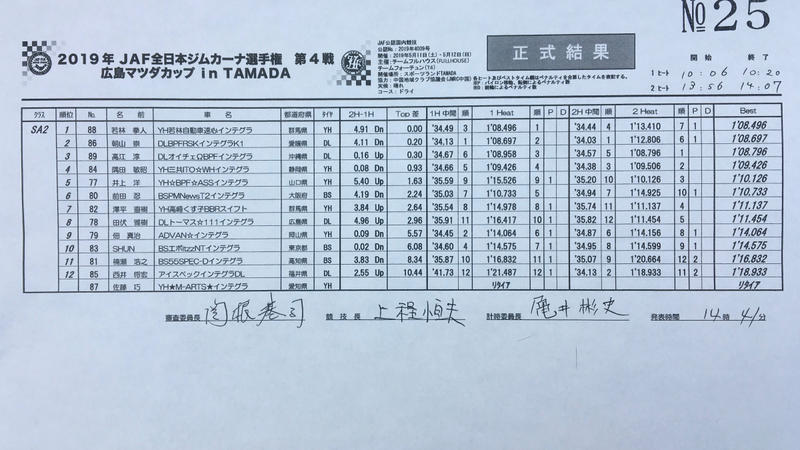 No 25
2019年 JAF全日本ジムカーナ選手権 第4戦
広島マツダカップ in TAMADA
JAF公認国内競技
公認No.:2019年4009号
開催:2019年5月11日(土)~5月12日(日)
主催:チームフルハウス(FULLHOUSE)
チームフォーチュン(T4)
開催場所:スポーツランドTAMADA
協力:中国地域クラブ協議会(JMRC中国)
天候:晴れ
コース:ドライ
正式結果
各ヒート及びベストタイム欄はペナルティを合算したタイムを表記する。
開始 終了
1ヒート 10:06 10:20
2ヒート 13:56 14:07
クラス 順位 No. 名前 車名 都道府県 タイヤ 2H-1H Top差 1H中間 順 1 Heat 順 P D 2H中間 順 2 Heat 順 P D Best
SA2 1 88 若林 拳人 YH若林自動車速心インテグラ 群馬県 YH 4.91 Dn 0.00 '34.49 3 1'08.496 1 '34.44 4 1'13.410 7 1 1'08.496
2 86 朝山 崇 DLBPFRSKインテグラK1 愛媛県 DL 4.11 Dn 0.20 '34.13 1 1'08.697 2 '34.03 1 1'12.806 6 1 1'08.697
3 89 高江 淳 DLオイチェQBPFインテグラ 沖縄県 DL 0.16 Up 0.30 '34.67 6 1'08.958 3 '34.57 5 1'08.796 1 1'08.796
4 84 隅田 敏昭 YH三共ITO☆WHインテグラ 静岡県 YH 0.08 Dn 0.93 '34.66 5 1'09.426 4 '34.38 3 1'09.506 2 1'09.426
5 77 井上 洋 YH☆BPF☆ASSインテグラ 山口県 YH 5.40 Up 1.63 '35.59 9 1'15.526 9 1 '35.20 10 1'10.126 3 1'10.126
6 80 前田 忍 BSPMNewsT2インテグラ 大阪府 BS 4.19 Dn 2.24 '35.03 7 1'10.733 5 '34.94 7 1'14.925 10 1 1'10.733
7 82 澤平 直樹 YH高崎くす子BBRスイフト 群馬県 YH 3.84 Up 2.64 '35.54 8 1'14.978 8 1 '35.74 11 1'11.137 4 1'11.137
8 78 田伏 雅樹 DLトーマス☆111インテグラ 広島県 DL 4.96 Up 2.96 '35.91 11 1'16.417 10 1 '35.82 12 1'11.454 5 1'11.454
9 79 佃 真治 ADVAN☆インテグラ 岡山県 YH 0.09 Dn 5.57 '34.45 2 1'14.064 6 1 '34.87 6 1'14.156 8 1 1'14.064
10 83 SHUN BSエボitzzNTインテグラ 東京都 BS 0.02 Dn 6.08 '34.60 4 1'14.575 7 1 '34.95 8 1'14.599 9 1 1'14.575
11 81 楠瀬 浩之 BS55SPEC-Dインテグラ 高知県 BS 3.83 Dn 8.34 '35.87 10 1'16.832 11 1 '35.07 9 1'20.664 12 2 1'16.832
12 85 西井 将宏 アイスペックインテグラDL 福井県 DL 2.55 Up 10.44 '41.73 12 1'21.487 12 1 '34.13 2 1'18.933 11 2 1'18.933
87 佐藤 巧 YH★M-ARTS★インテグラ 愛知県 YH リタイア リタイア
審査委員長 競技長 上程恒夫 計時委員長 亀井彬史 発表時間 14時41分